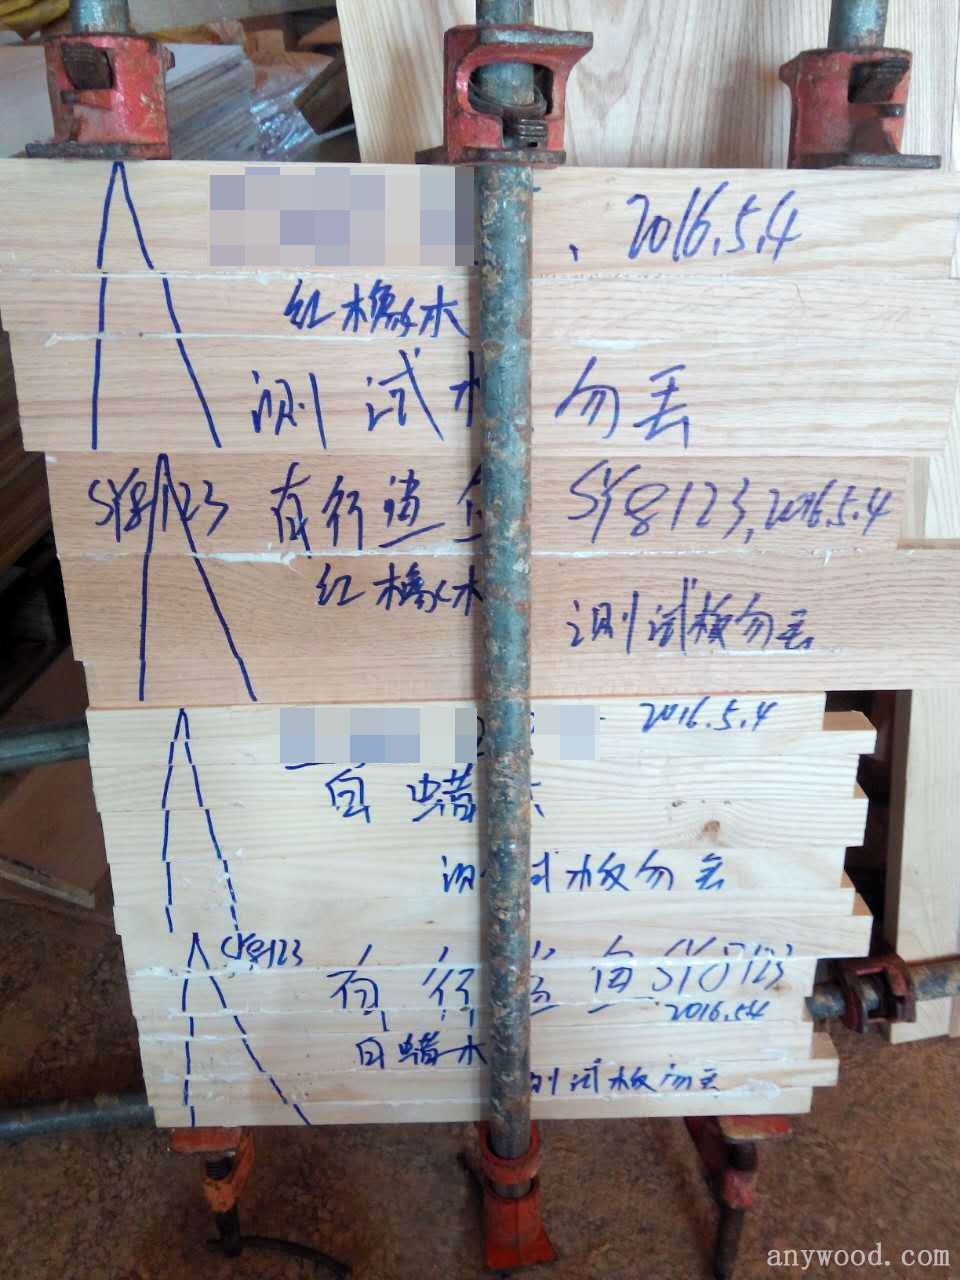 2016.5.4
红橡木
测试 勿丢
SY8123 有行道 SY8123, 2016.5.4
红橡木
测试板勿丢
2016.5.4
白蜡
试板勿丢
SY8123 有行 SY8123
2016.5.4
白蜡木
测试板勿丢
anywood.com